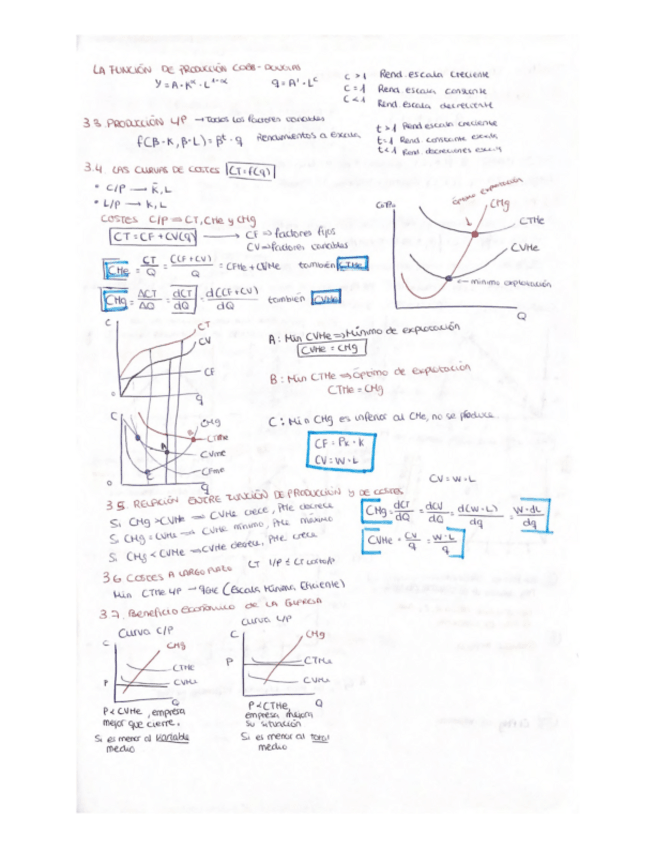 LA FUNCIÓN DE PRODUCCIÓN COBB-DOUGLAS
y = A · K^α · L^1-α   q = A' · L^c
c > 1 Rend. escala creciente
c = 1 Rend. escala constante
c < 1 Rend. escala decreciente
3.3. PRODUCCIÓN L/P → Todos los factores variables
f(β·K, β·L) = β^t · q Rendimientos a escala
t > 1 Rend escala creciente
t = 1 Rend. constante escala
t < 1 Rend. decrecientes
3.4. LAS CURVAS DE COSTES CT = f(q)
• C/P → K̄, L
• L/P → K, L
COSTES C/P ⇒ CT, CMe y CMg
CT = CF + CV(q) → CF ⇒ factores fijos
CV ⇒ factores variables
CMe = CT/Q = (CF+CV)/Q = CFMe + CVMe también CTMe
CMg = ΔCT/ΔQ = dCT/dQ = d(CF+CV)/dQ también CVMg
óptimo explotación
CMg
CTMe
CVMe
mínimo explotación
Q
C
CT
CV
CF
0
q
A: Min CVMe ⇒ Mínimo de explotación
CVMe = CMg
B: Min CTMe ⇒ óptimo de explotación
CTMe = CMg
C: Min CMg es inferior al CMe, no se produce
CF = Pk · K
CV = W · L
C
CMg
B
CTMe
A
CVMe
CFMe
C
0
q
CV = W · L
3.5. RELACIÓN ENTRE FUNCIÓN DE PRODUCCIÓN Y DE COSTES
Si CMg > CVMe ⇒ CVMe crece, PMe decrece
Si CMg = CVMe ⇒ CVMe mínimo, PMe máximo
Si CMg < CVMe ⇒ CVMe decrece, PMe crece
CMg = dCT/dQ = dCV/dQ = d(W·L)/dq = W·dL/dq
CVMe = CV/q = W·L/q
3.6 COSTES A LARGO PLAZO CT L/P ≤ CT
Min CTMe L/P → qEME (Escala Mínima Eficiente)
3.7. Beneficio Económico DE LA EMPRESA
Curva C/P
C
CMg
CTMe
CVMe
P
Q
P < CVMe, empresa
mejor que cierre.
Si es menor al variable
medio
Curva L/P
C
CMg
P
CTMe
CVMe
Q
P < CTMe,
empresa mejora
su situación
Si es menor al total
medio